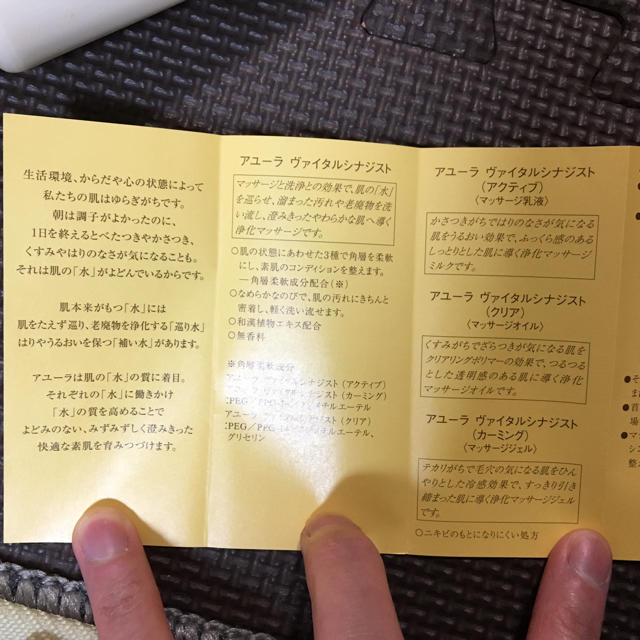 生活環境、からだや心の状態によって
私たちの肌はゆらぎがちです。
朝は調子がよかったのに、
1日を終えるとべたつきやかさつき、
くすみやはりのなさが気になることも。
それは肌の「水」がよどんでいるからです。
肌本来がもつ「水」には
肌をたえず巡り、老廃物を浄化する「巡り水」
はりやうるおいを保つ「補い水」があります。
アユーラは肌の「水」の質に着目。
それぞれの「水」に働きかけ
「水」の質を高めることで
よどみのない、みずみずしく澄みきった
快適な素肌を育みつづけます。
アユーラ ヴァイタルシナジスト
マッサージと洗浄との効果で、肌の「水」
を巡らせ、溜まった汚れや老廃物を洗
い流し、澄みきったやわらかな肌へ導く
浄化マッサージです。
○肌の状態にあわせた3種で角層を柔軟
にし、素肌のコンディションを整えます。
―角層柔軟成分配合(※)
○なめらかなのびで、肌の汚れにきちんと
密着し、軽く洗い流せます。
○和漢植物エキス配合
○無香料
※角層柔軟成分
アユーラ ヴァイタルシナジスト(アクティブ)
アユーラ ヴァイタルシナジスト(カーミング)
:PEG/PPG チルエーテル
アユーラ シナジスト(クリア)
:PEG/PPG チルエーテル、
グリセリン
アユーラ ヴァイタルシナジスト
(アクティブ)
〈マッサージ乳液〉
かさつきがちではりのなさが気になる
肌をうるおい効果で、ふっくら感のある
しっとりとした肌に導く浄化マッサージ
ミルクです。
アユーラ ヴァイタルシナジスト
(クリア)
〈マッサージオイル〉
くすみがちでざらつきが気になる肌を
クリアリングポリマーの効果で、つるつる
とした透明感のある肌に導く浄化
マッサージオイルです。
アユーラ ヴァイタルシナジスト
(カーミング)
〈マッサージジェル〉
テカリがちで毛穴の気になる肌をひん
やりとした冷感効果で、すっきり引き
締まった肌に導く浄化マッサージジェル
です。
○ニキビのもとになりにくい処方